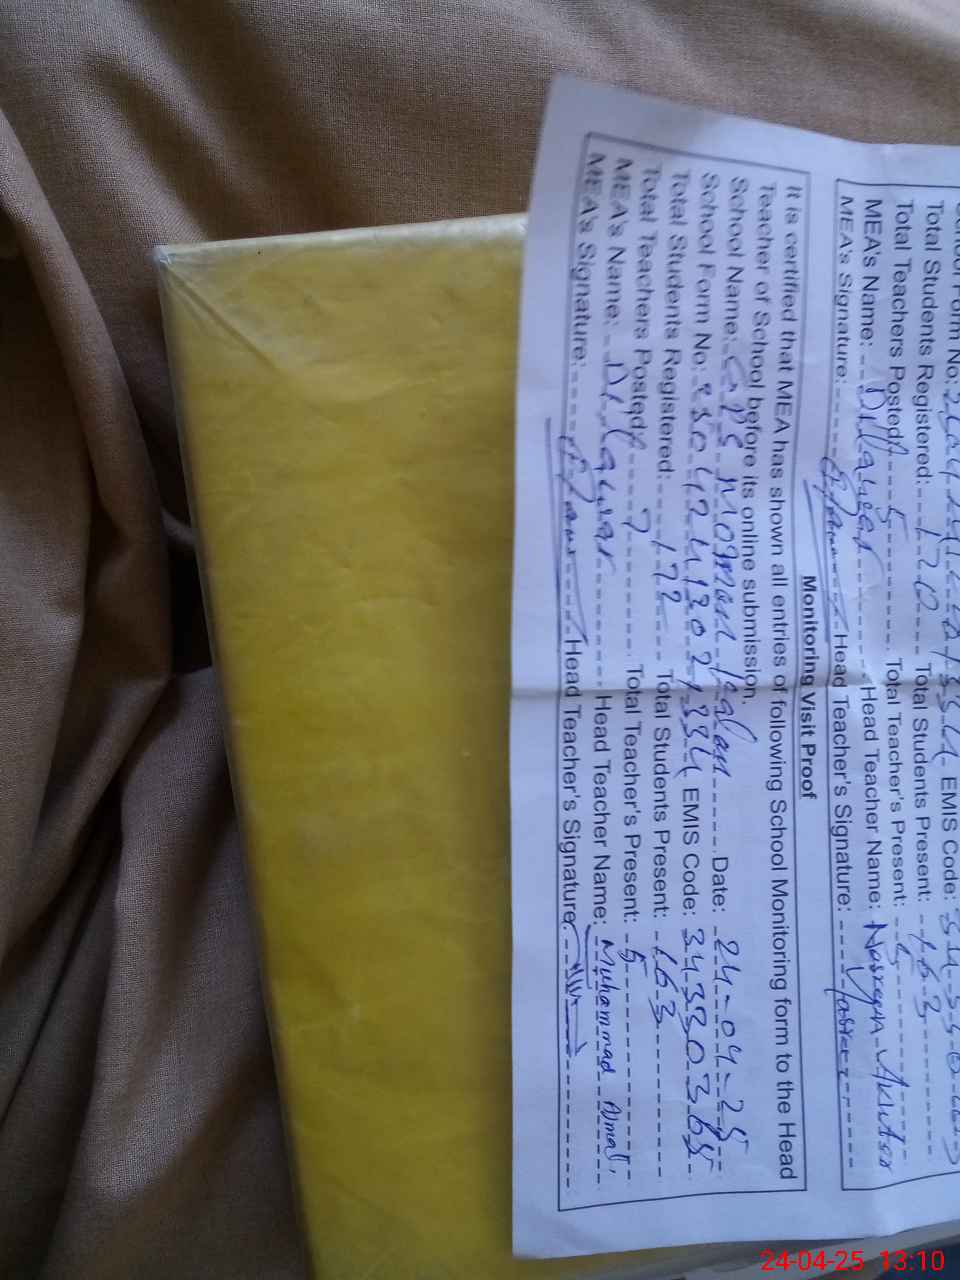 Form No:
EMIS Code:
Total Students Registered: 170 Total Students Present: 163
Total Teachers Posted: 5 Total Teacher's Present: 5
MEA's Name: Dilawar Head Teacher Name: Nasreen Akhter
MEA's Signature: Head Teacher's Signature:
Monitoring Visit Proof
It is certified that MEA has shown all entries of following School Monitoring form to the Head
Teacher of School before its online submission.
School Name: GPS Date: 24-04-25
School Form No: EMIS Code: 34330365
Total Students Registered: 177 Total Students Present: 163
Total Teachers Posted: 7 Total Teacher's Present: 5
MEA's Name: Dilawar Head Teacher Name: Muhammad Ajmal.
MEA's Signature: Head Teacher's Signature:
24-04-25 13:10